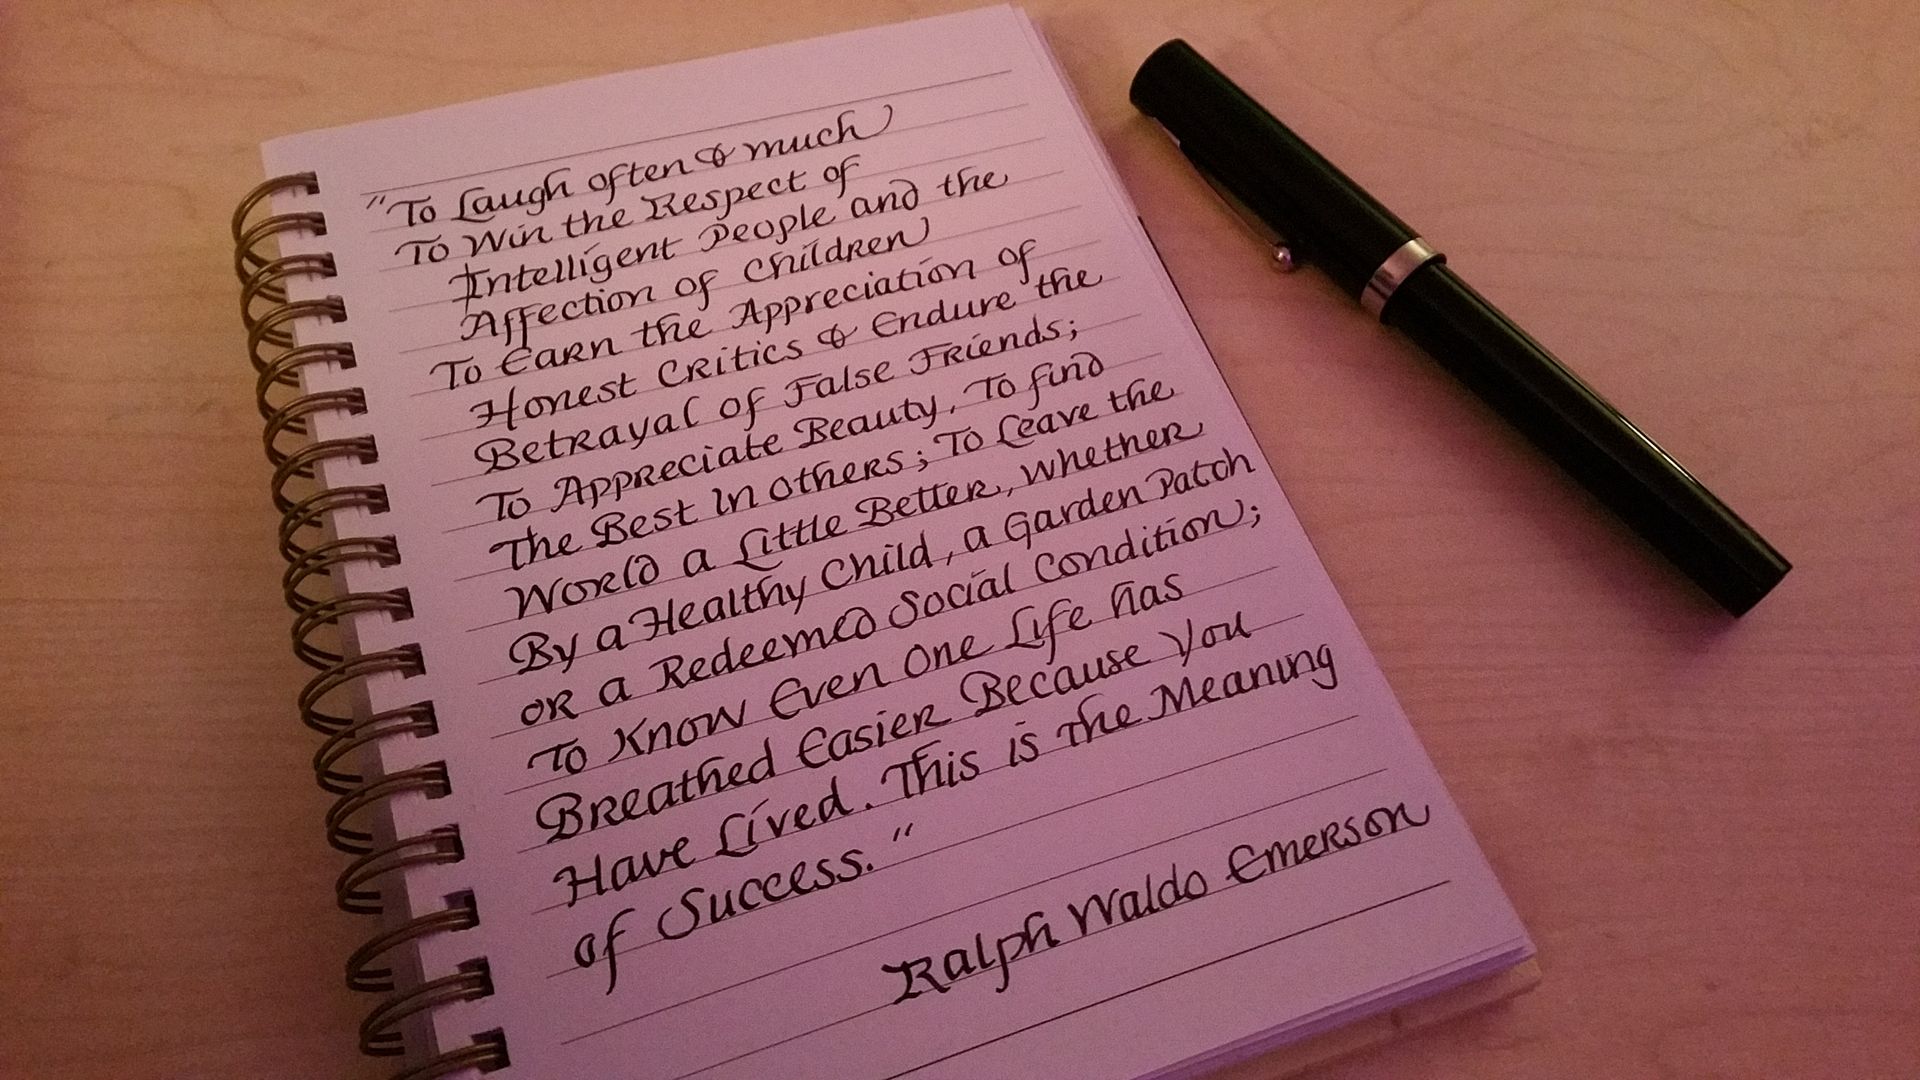 "To Laugh often & much
To Win the Respect of
Intelligent People and the
Affection of Children
To Earn the Appreciation of
Honest Critics & Endure the
Betrayal of False Friends;
To Appreciate Beauty, To find
The Best In others; To Leave the
World a Little Better, Whether
By a Healthy Child, a Garden Patch
or a Redeemed Social Condition;
To Know Even One Life has
Breathed Easier Because You
Have Lived. This is the Meaning
of Success."
Ralph Waldo Emerson